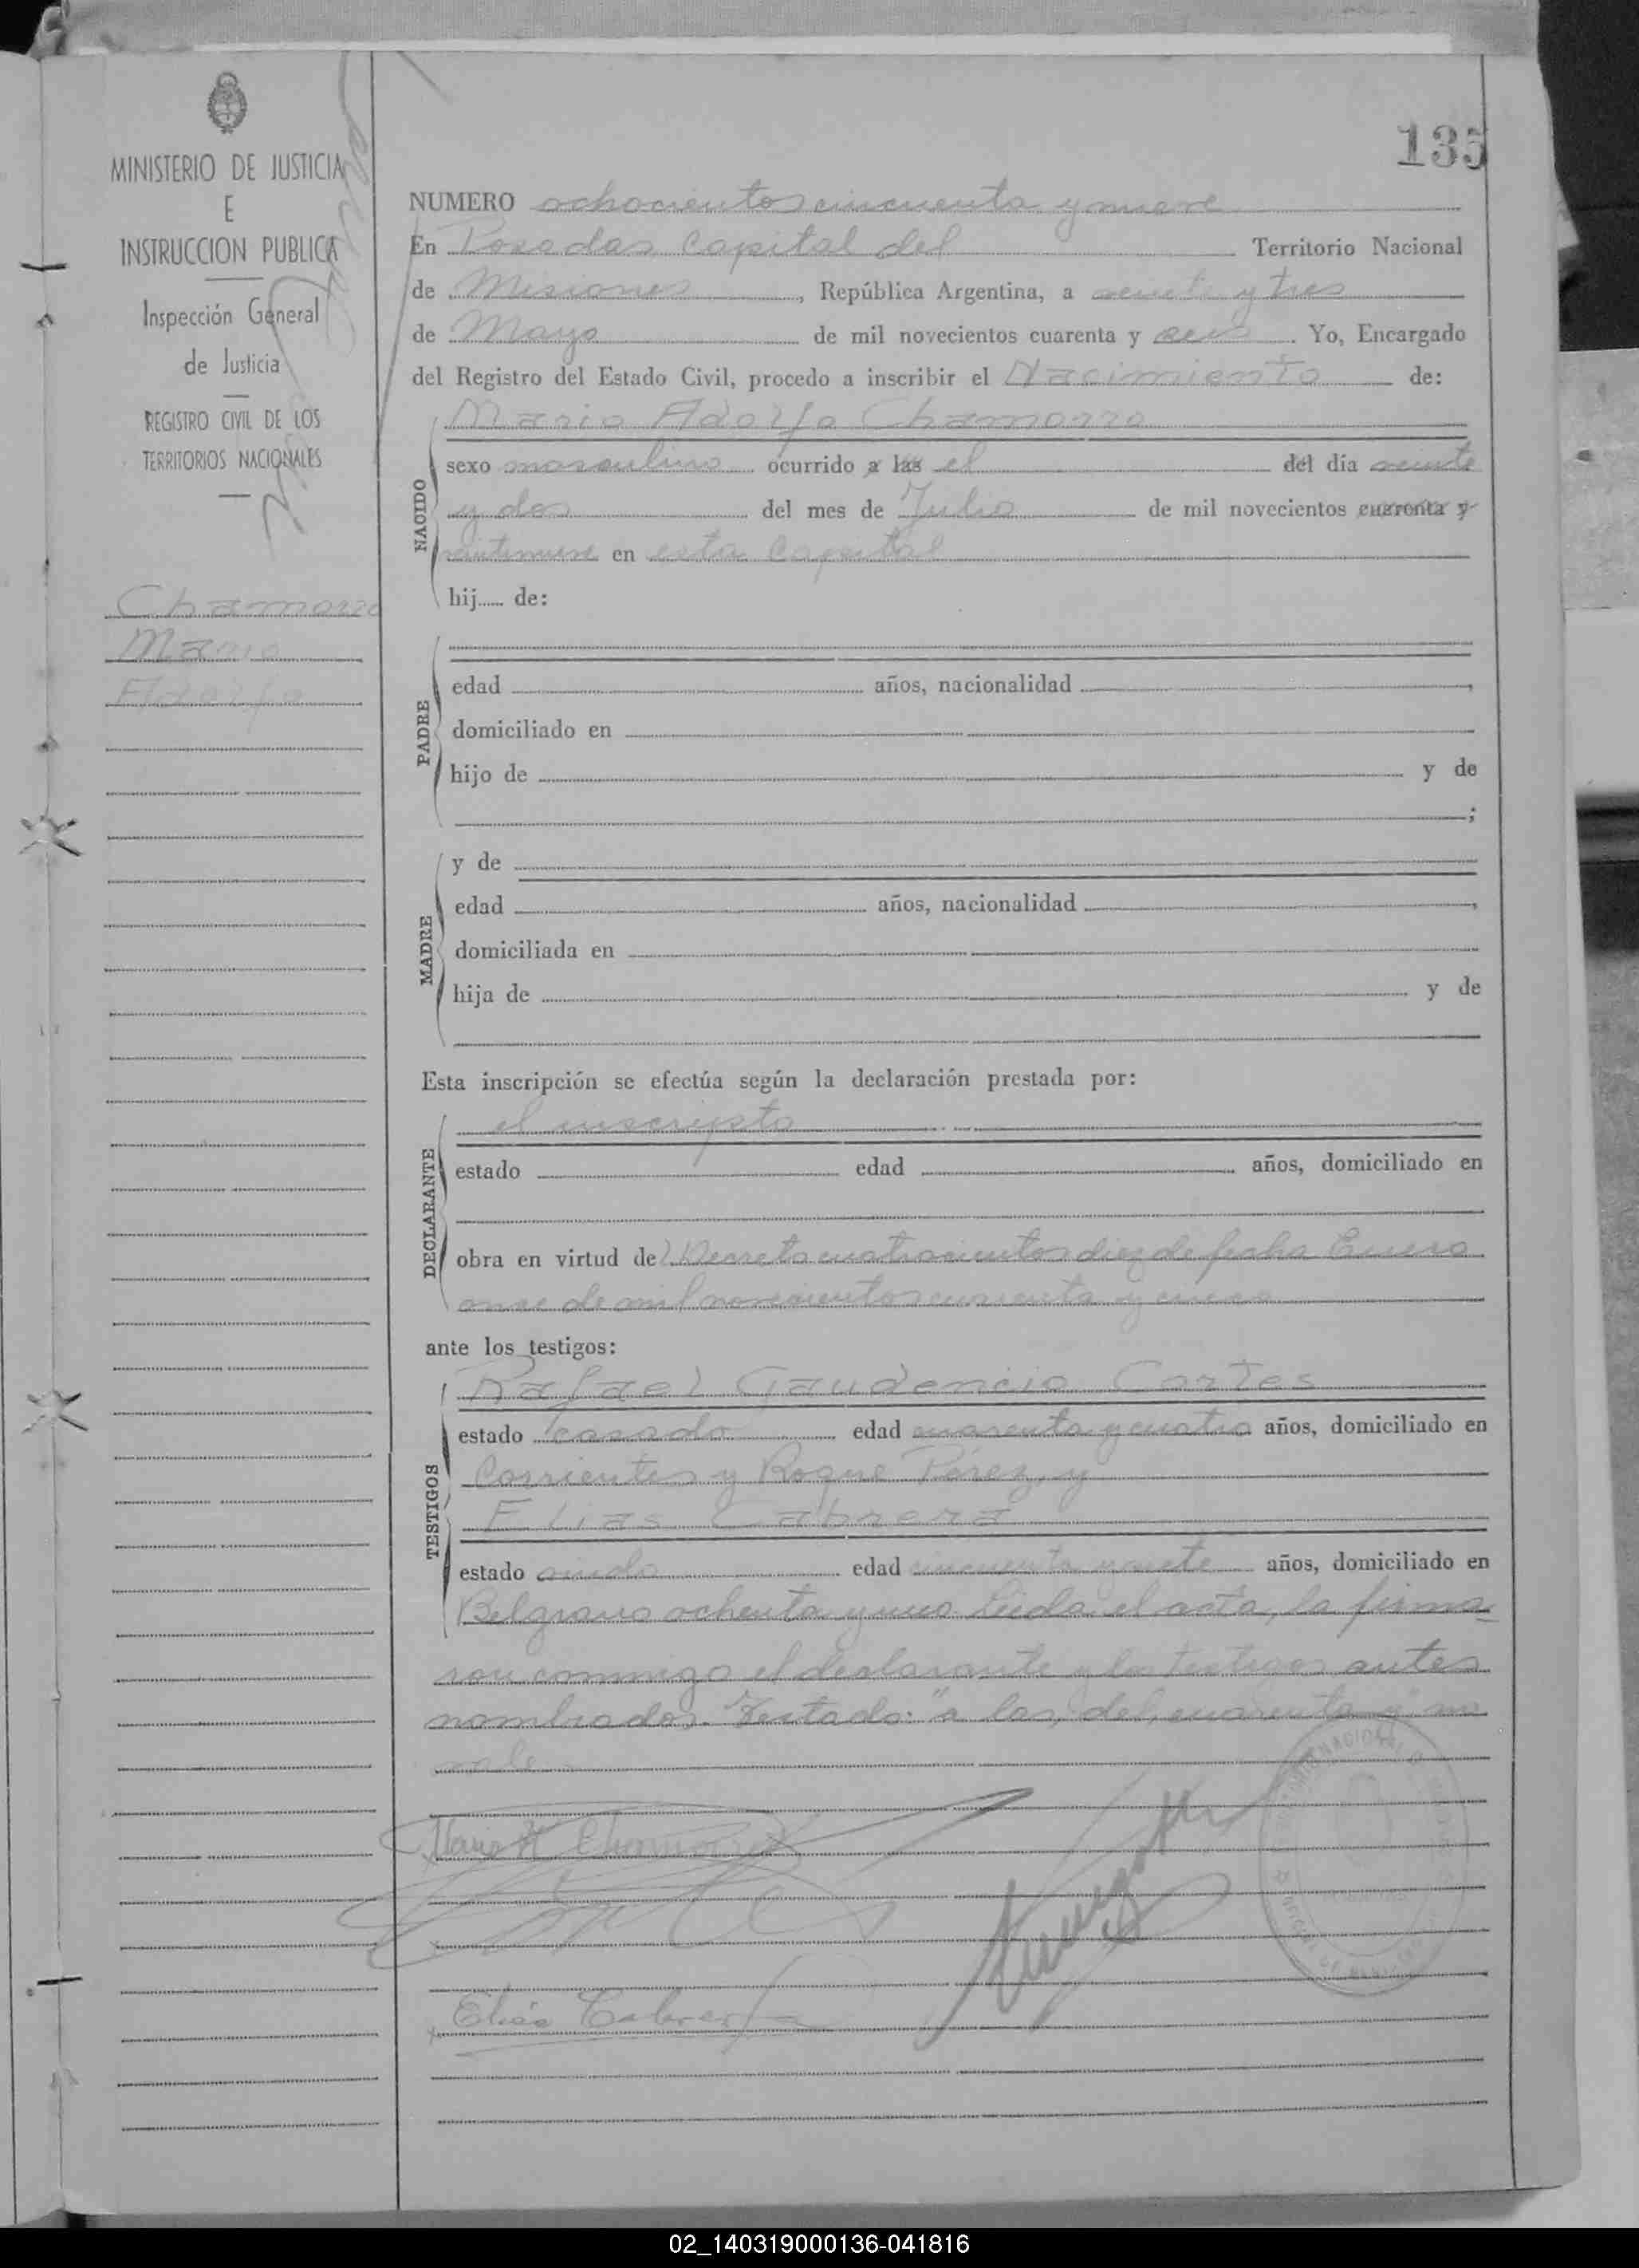 135
MINISTERIO DE JUSTICIA
E
INSTRUCCION PUBLICA
Inspección General
de Justicia
REGISTRO CIVIL DE LOS
TERRITORIOS NACIONALES
Chamorro
Mario
Adolfo
NUMERO ochocientos cincuenta y nueve
En Posadas Capital del Territorio Nacional
de Misiones, República Argentina, a veinte y tres
de Mayo de mil novecientos cuarenta y seis. Yo, Encargado
del Registro del Estado Civil, procedo a inscribir el Nacimiento de:
NACIDO
Mario Adolfo Chamorro
sexo masculino ocurrido a las el del dia veinte
y dos del mes de Julio de mil novecientos cuarenta y
veintinueve en esta Capital
hij de:
PADRE
edad años, nacionalidad
domiciliado en
hijo de y de
;
MADRE
y de
edad años, nacionalidad
domiciliada en
hija de y de
Esta inscripción se efectúa según la declaración prestada por:
DECLARANTE
el inscripto
estado edad años, domiciliado en
obra en virtud del Decreto cuatrocientos diez de fecha Enero
once de mil novecientos cuarenta y cinco
ante los testigos:
TESTIGOS
Rafael Gaudencio Cortes
estado casado edad cuarenta y cuatro años, domiciliado en
Corrientes y Roque Pérez, y
Elias Cabrera
estado viudo edad cincuenta y siete años, domiciliado en
Belgrano ochenta y uno. Leida el acta, la firma-
ron conmigo el declarante y los testigos antes
nombrados. Testado: "a las, del, cuarenta y" no
vale
Mario A Chamorro
Elias Cabrera
02_140319000136-041816